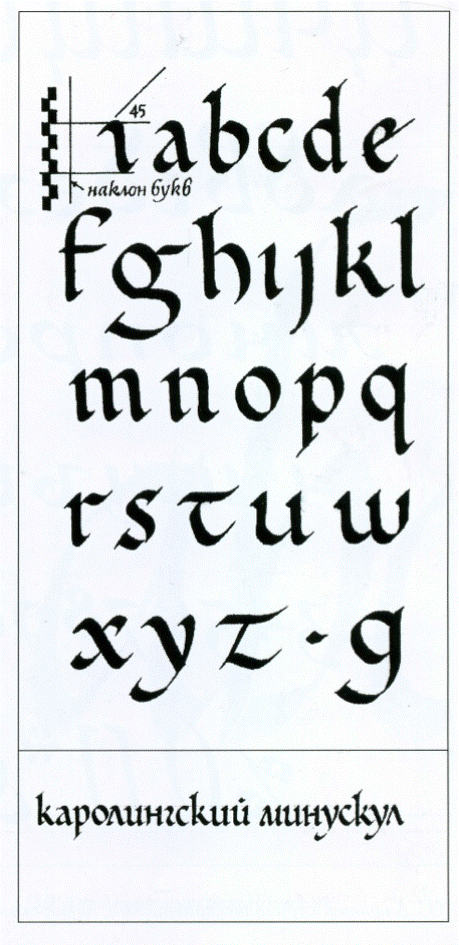 45
ı a b c d e
наклон букв
f g h ı ȷ k l
m n o p q
r s t u w
x y z - g
каролингский минускул